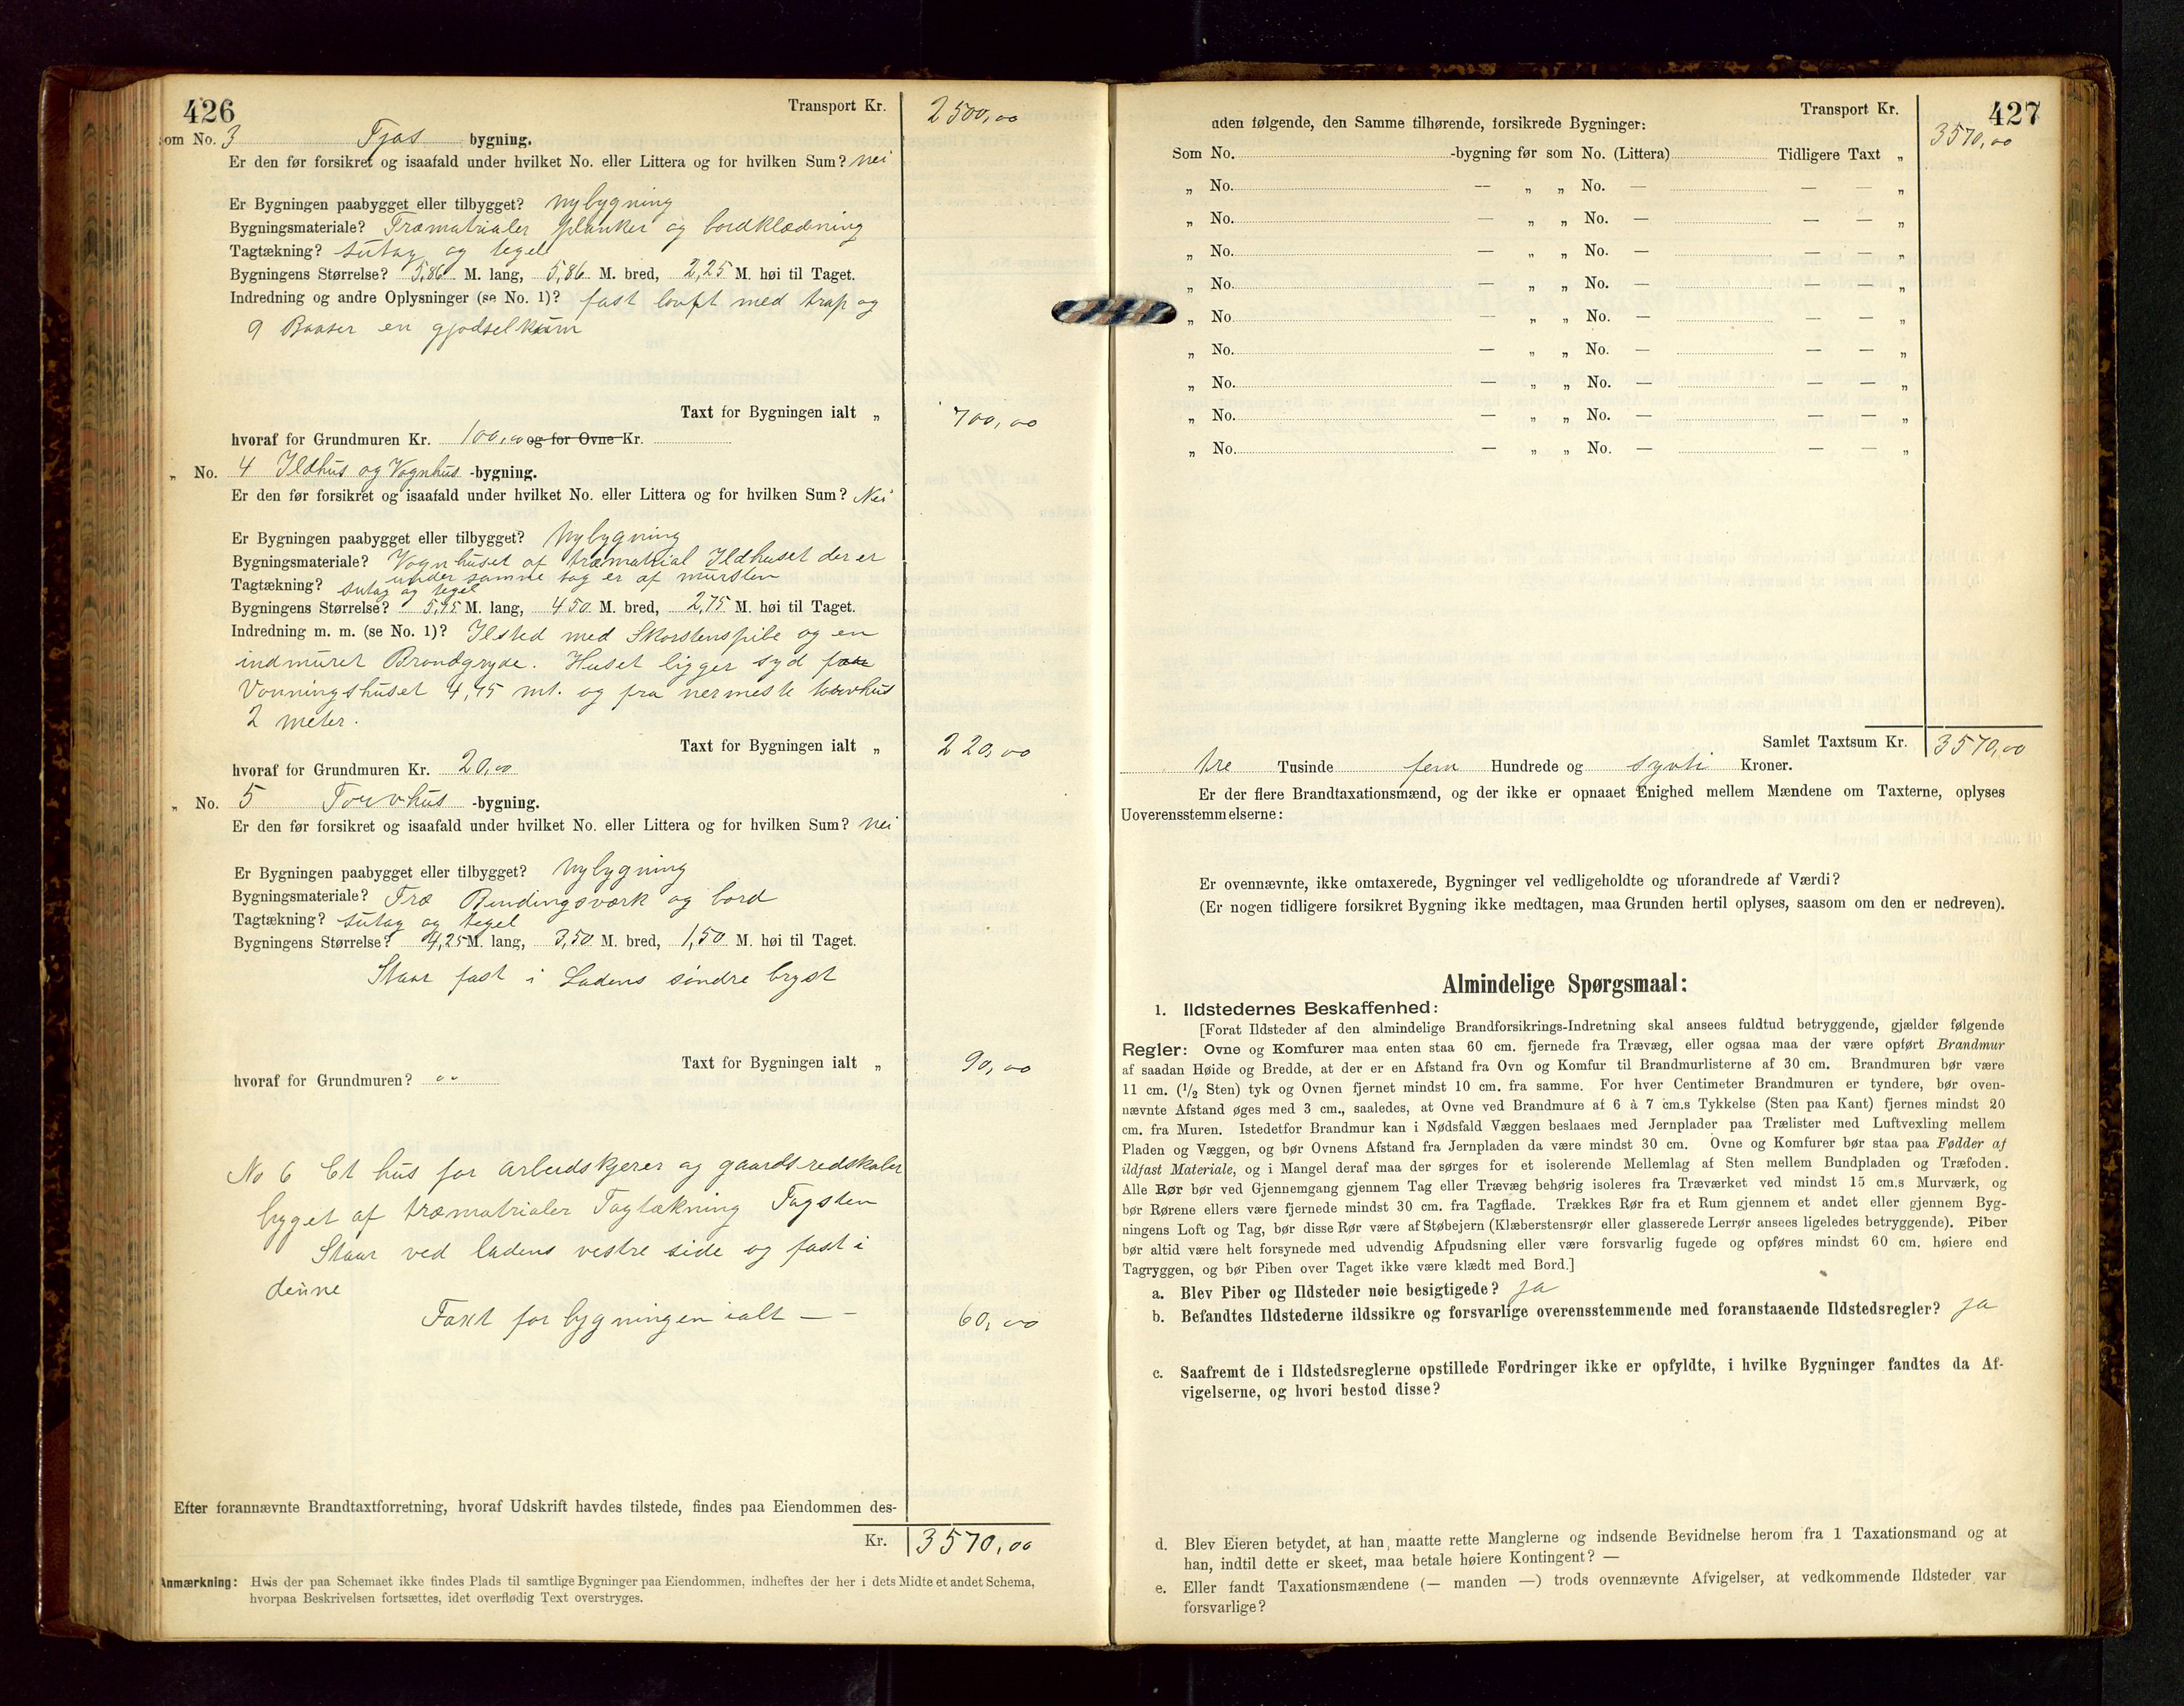 426
Transport Kr. 2500,00
som No. 3 Fjøs bygning.
Er den før forsikret og isaafald under hvilket No. eller Littera og for hvilken Sum? nei
Er Bygningen paabygget eller tilbygget? Nybygning
Bygningsmateriale? Træmatrialer planker og bordklædning
Tagtækning? sutag og tegel
Bygningens Størrelse? 5,86 M. lang, 5,86 M. bred, 2,25 M. høi til Taget.
Indredning og andre Oplysninger (se No. 1)? fast louft med trap og
9 Baaser en gjødselkum
Taxt for Bygningen ialt „ 700,00
hvoraf for Grundmuren Kr. 100,00 og for Ovne Kr.
„ No. 4 Ildhus og Vognhus -bygning.
Er den før forsikret og isaafald under hvilket No. eller Littera og for hvilken Sum? Nei
Er Bygningen paabygget eller tilbygget? Nybygning
Bygningsmateriale? Vognhuset af træmatrial Ildhuset der er
under samme tag er af mursten
Tagtækning? sutag og tegel
Bygningens Størrelse? 5,95 M. lang, 4 50 M. bred, 2,75 M. høi til Taget.
Indredning m. m. (se No. 1)? Ilsted med Skorstenspibe og en
indmuret Brandgryde. Huset ligger syd fra
Vonningshuset 4,45 mt. og fra nermeste torvhus
2 meter.
Taxt for Bygningen ialt „ 220,00
hvoraf for Grundmuren Kr. 20,00
„ No. 5 Torvhus -bygning.
Er den før forsikret og isaafald under hvilket No. eller Littera og for hvilken Sum? nei
Er Bygningen paabygget eller tilbygget? Nybygning
Bygningsmateriale? Træ Bindingsværk og bord
Tagtækning? sutag og tegel
Bygningens Størrelse? 4,25 M. lang, 3,50 M. bred, 1,50 M. høi til Taget.
Staar fast i Ladens søndre bryst
Taxt for Bygningen ialt „ 90,00
hvoraf for Grundmuren? „„
No 6 Et hus for arbeidskjerer og gaardsredskaber
bygget af træmatrialer Tagtækning Tagsten
Staar ved ladens vestre side og fast i
denne
Taxt for bygningen ialt — - 60,00
Efter forannævnte Brandtaxtforretning, hvoraf Udskrift havdes tilstede, findes paa Eiendommen des-
Kr. 3570,00
Anmærkning: Hvis der paa Schemaet ikke findes Plads til samtlige Bygninger paa Eiendommen, indheftes der her i dets Midte et andet Schema,
hvorpaa Beskrivelsen fortsættes, idet overflødig Text overstryges.
Transport Kr. 427
uden følgende, den Samme tilhørende, forsikrede Bygninger: 3570,00
Som No. -bygning før som No. (Littera) Tidligere Taxt „
„ No. — „ „ No. — — — „
„ No. — „ „ No. — — — „
„ No. — „ „ No. — — — „
„ No. — „ „ No. — — — „
„ No. — „ „ No. — — — „
„ No. — „ „ No. — — — „
„ No. — „ „ No. — — — „
„ No. — „ „ No. — — — „
„ No. — „ „ No. — — — „
Samlet Taxtsum Kr. 3570,00
tre Tusinde fem Hundrede og sytti Kroner.
Er der flere Brandtaxationsmænd, og der ikke er opnaaet Enighed mellem Mændene om Taxterne, oplyses
Uoverensstemmelserne:
Er ovennævnte, ikke omtaxerede, Bygninger vel vedligeholdte og uforandrede af Værdi?
(Er nogen tidligere forsikret Bygning ikke medtagen, maa Grunden hertil oplyses, saasom om den er nedreven).
Almindelige Spørgsmaal:
1. Ildstedernes Beskaffenhed:
[Forat Ildsteder af den almindelige Brandforsikrings-Indretning skal ansees fuldtud betryggende, gjælder følgende
Regler: Ovne og Komfurer maa enten staa 60 cm. fjernede fra Trævæg, eller ogsaa maa der være opført Brandmur
af saadan Høide og Bredde, at der er en Afstand fra Ovn og Komfur til Brandmurlisterne af 30 cm. Brandmuren bør være
11 cm. (1/2 Sten) tyk og Ovnen fjernet mindst 10 cm. fra samme. For hver Centimeter Brandmuren er tyndere, bør oven-
nævnte Afstand øges med 3 cm., saaledes, at Ovne ved Brandmure af 6 à 7 cm.s Tykkelse (Sten paa Kant) fjernes mindst 20
cm. fra Muren. Istedetfor Brandmur kan i Nødsfald Væggen beslaaes med Jernplader paa Trælister med Luftvexling mellem
Pladen og Væggen, og bør Ovnens Afstand fra Jernpladen da være mindst 30 cm. Ovne og Komfurer bør staa paa Fødder af
ildfast Materiale, og i Mangel deraf maa der sørges for et isolerende Mellemlag af Sten mellem Bundpladen og Træfoden.
Alle Rør bør ved Gjennemgang gjennem Tag eller Trævæg behørig isoleres fra Træværket ved mindst 15 cm.s Murværk, og
bør Rørene ellers være fjernede mindst 30 cm. fra Tagflade. Trækkes Rør fra et Rum gjennem et andet eller gjennem Byg-
ningens Loft og Tag, bør disse Rør være af Støbejern (Klæberstensrør eller glasserede Lerrør ansees ligeledes betryggende). Piber
bør altid være helt forsynede med udvendig Afpudsning eller være forsvarlig fugede og opføres mindst 60 cm. høiere end
Tagryggen, og bør Piben over Taget ikke være klædt med Bord.]
a. Blev Piber og Ildsteder nøie besigtigede? ja
b. Befandtes Ildstederne ildssikre og forsvarlige overensstemmende med foranstaaende Ildstedsregler? ja
c. Saafremt de i Ildstedsreglerne opstillede Fordringer ikke er opfyldte, i hvilke Bygninger fandtes da Af-
vigelserne, og hvori bestod disse?
d. Blev Eieren betydet, at han maatte rette Manglerne og indsende Bevidnelse herom fra 1 Taxationsmand og at
han, indtil dette er skeet, maa betale høiere Kontingent? —
e. Eller fandt Taxationsmændene (— manden —) trods ovennævnte Afvigelser, at vedkommende Ildsteder var
forsvarlige?